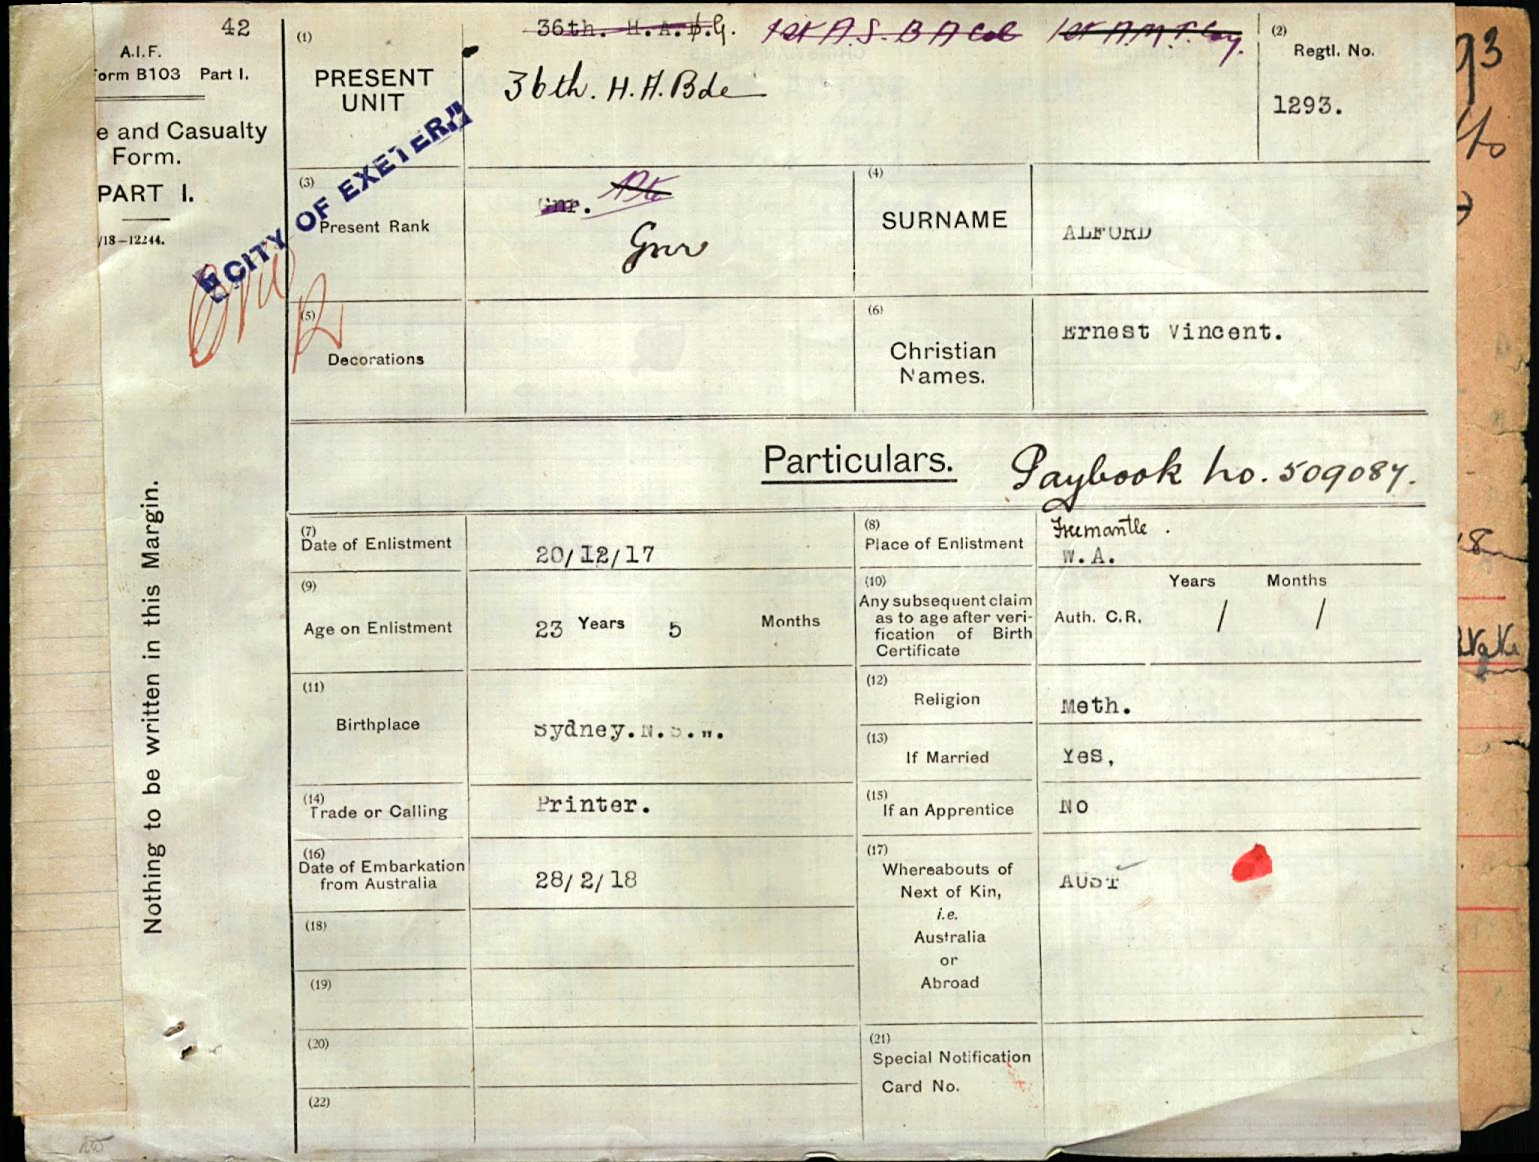 42
A.I.F.
orm B103 Part I.
e and Casualty
Form.
PART I.
/18–12244.
Nothing to be written in this Margin.
(1)
PRESENT
UNIT
36th. H.A.
1st A.S.B.A Col
1st A.M.T. Coy.
36th. H.A. Bde
(2)
Regtl. No.
1293.
"CITY OF EXETER"
(3)
Present Rank
Gnr. Pte
Gnr
(4)
SURNAME
ALFORD
(5)
Decorations
(6)
Christian
Names.
Ernest Vincent.
Particulars. Paybook No. 509087.
(7)
Date of Enlistment
20/12/17
(8)
Place of Enlistment
Fremantle.
W.A.
(9)
Age on Enlistment
23 Years 5 Months
(10)
Any subsequent claim
as to age after veri-
fication of Birth
Certificate
Years Months
Auth. C.R. / /
(11)
Birthplace
Sydney.N.S.W.
(12)
Religion
Meth.
(13)
If Married
Yes,
(14)
Trade or Calling
Printer.
(15)
If an Apprentice
No
(16)
Date of Embarkation
from Australia
28/2/18
(17)
Whereabouts of
Next of Kin,
i.e.
Australia
or
Abroad
AUST
(18)
(19)
(20)
(21)
Special Notification
Card No.
(22)
93